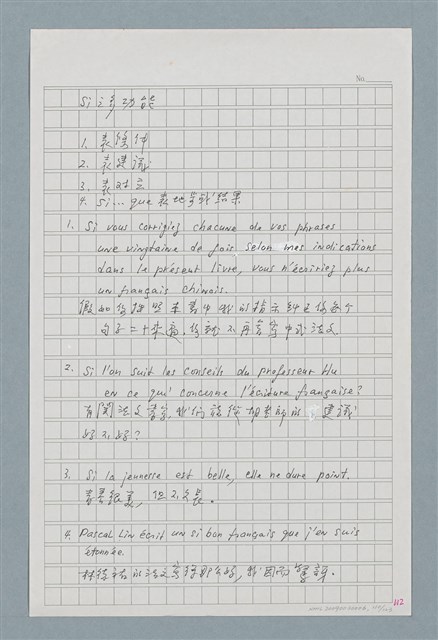 No.
Si 之多功能
1. 表條件
2. 表建議
3. 表对立
4. Si...que 表地步或结果
1. Si vous corrigiez chacune de vos phrases
une vingtaine de fois selon mes indications
dans le présent livre, vous n'écririez plus
un français chinois.
假如你按照本書中我的指示糾正你每个
句子二十来遍，你就不再書寫中式法文
2. Si l'on suit les conseils du professeur Hu
en ce qui concerne l'écriture française?
有関法文書寫，我们該從胡老師的建議
好不好?
3. Si la jeunesse est belle, elle ne dure point.
青春很美，但不久長。
4. Pascal Lin écrit un si bon français que j'en suis
étonnée.
的法文寫得那么好，我因而驚訝。
112